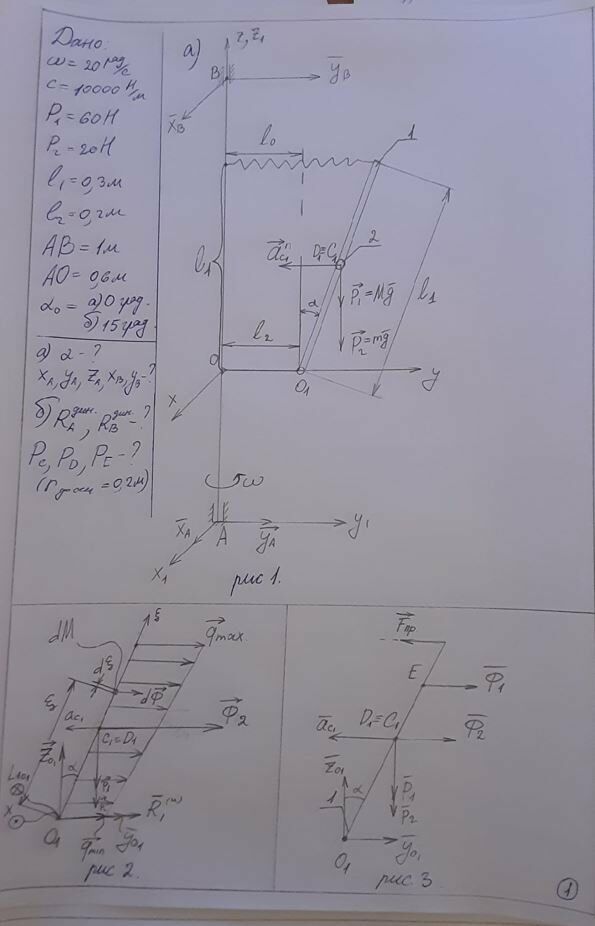 Дано:
ω = 20 рад/с
c = 10000 Н/м
P₁ = 60Н
P₂ = 20Н
l₁ = 0,3м
l₂ = 0,2м
AB = 1м
AO = 0,6м
α₀ = а) 0 град.
б) 15 град.
а) α - ?
x_A, y_A, z_A, x_B, y_B - ?
б) R_A^дин., R_B^дин. - ?
P_C, P_D, P_E - ?
= 0,2м)
а)
z, z₁
B
y_B
x_B
l₀
1
l₁
a_c₁ⁿ
D₁=C₁
2
P₁=Mg
α
P₂=mg
l₁
l₂
O
O₁
y
x
ω
x_A
A
y_A
y₁
x₁
рис 1.
dM
ξ
q max.
dξ
ξ
dФ
a_c₁
Ф₂
C₁=D₁
Z_O₁
α
P₁
x
R₁^(и)
O₁
q min
y_O₁
рис 2.
F пр
E
Ф₁
D₁=C₁
a_c₁
Ф₂
Z_O₁
P₁
1
α
P₂
O₁
y_O₁
рис. 3
1